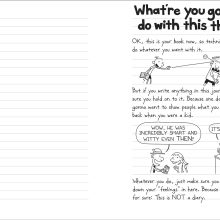 What're you go
do with this th
OK, this is your book now, so techn
do whatever you want with it.
But if you write anything in this jou
sure you hold on to it. Because one d
gonna want to show people what you
back when you were a kid.
WOW, HE WAS
INCREDIBLY SMART AND
WITTY EVEN THEN!
IT'S
Whatever you do, just make sure you
down your "feelings" in here. Because
for sure: This is NOT a diary.